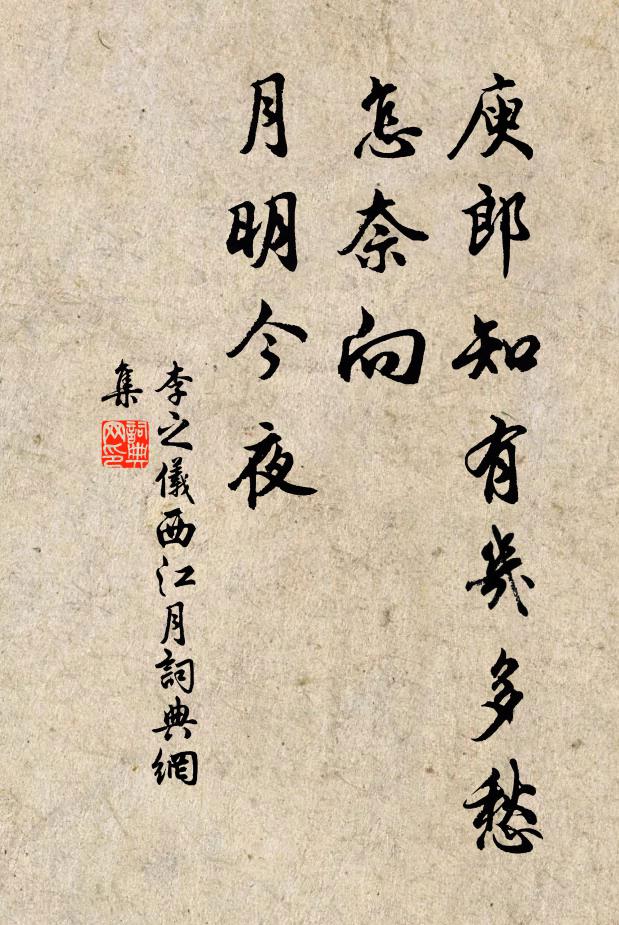 庾郎知有幾多愁
怎奈向
月明今夜
李之儀西江月詞典網
集
詞典
网印